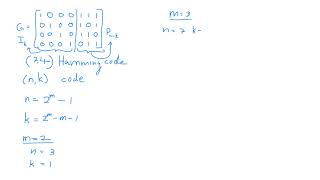 G = [1 0 0 0 1 1 1
0 1 0 0 1 0 1
0 0 1 0 1 1 0
0 0 0 1 0 1 1]
I_k
Hamming code
(n,k) code
n = 2^m - 1
k = 2^m - m - 1
m=2
n = 3
k = 1
n = 7 k =